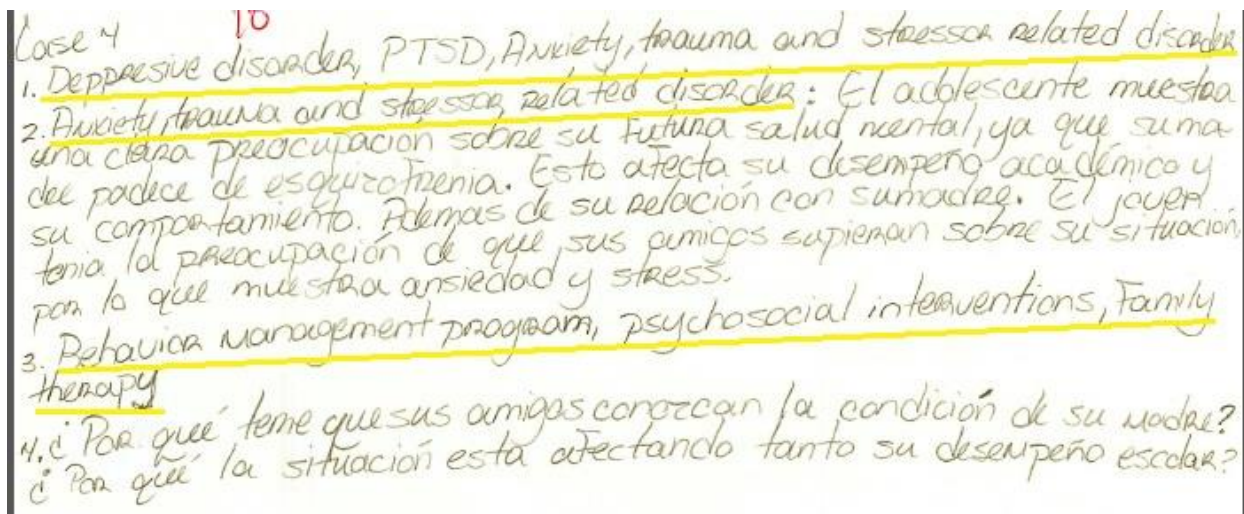 10
Case 4
1. Deppresive disorder, PTSD, Anxiety, trauma and stressor related disorder
2. Anxiety, trauma and stressor related disorder: El adolescente muestra
una clara preocupación sobre su futura salud mental, ya que su ma-
dre padece de esquizofrenia. Esto afecta su desempeño académico y
su comportamiento. Ademas de su relación con su madre. El joven
tenia la preocupación de que sus amigos supieran sobre su situación,
por lo que muestra ansiedad y stress.
3. Behavior management program, psychosocial interventions, Family
therapy
4. ¿Por qué teme que sus amigos conozcan la condición de su madre?
¿Por qué la situación esta afectando tanto su desempeño escolar?